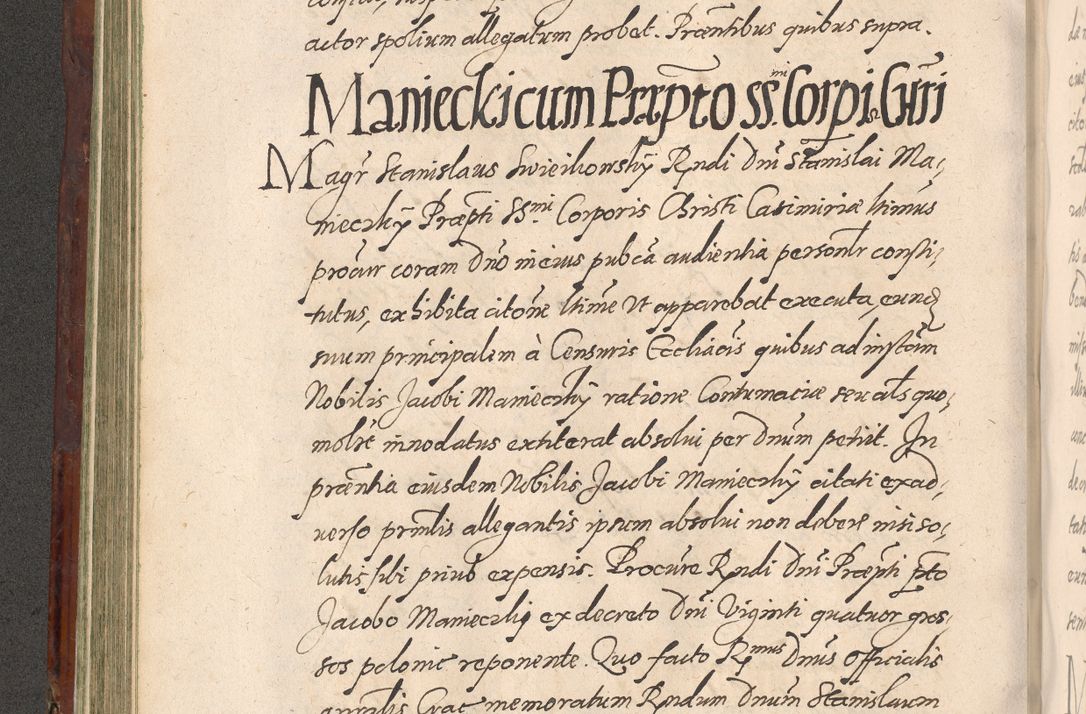 actor spolium allegatum probet. Præntibus quibus supra.
Manieckicum Præpto SS.mi Corpis Chri
Magr Stanislaus Swieikowskÿ Rndi Dni Stanislai Ma,
nieczkÿ Præpti SS.mi Corporis Christi Casimiriæ ltimus
procur coram Dno in eius pubca audientia personlr consti,
tutus, exhibita citone ltime ut apparebat executa, eund
suum principalem à Censuris Eccliacis quibus ad instām
Nobilis Jacobi Manieczkÿ ratione Contumaciæ seu als quo,
molibt innodatus extiterat absolui per Dnum petiit. In
præntia eiusdem Nobilis Jacobi Manieczkÿ citati ex ad,
uerso prmlis allegantis ipsum absolui non debere nisi so,
lutis sibi prius expensis. Procure Rndi Dni Præpti pto
Jacobo Manieczkij ex decreto Dni Viginti quatuor gros,
sos polonic reponente. Quo facto Rmus Dnus Officialis
Crac memoratum Rndum Dnum Stanislaum